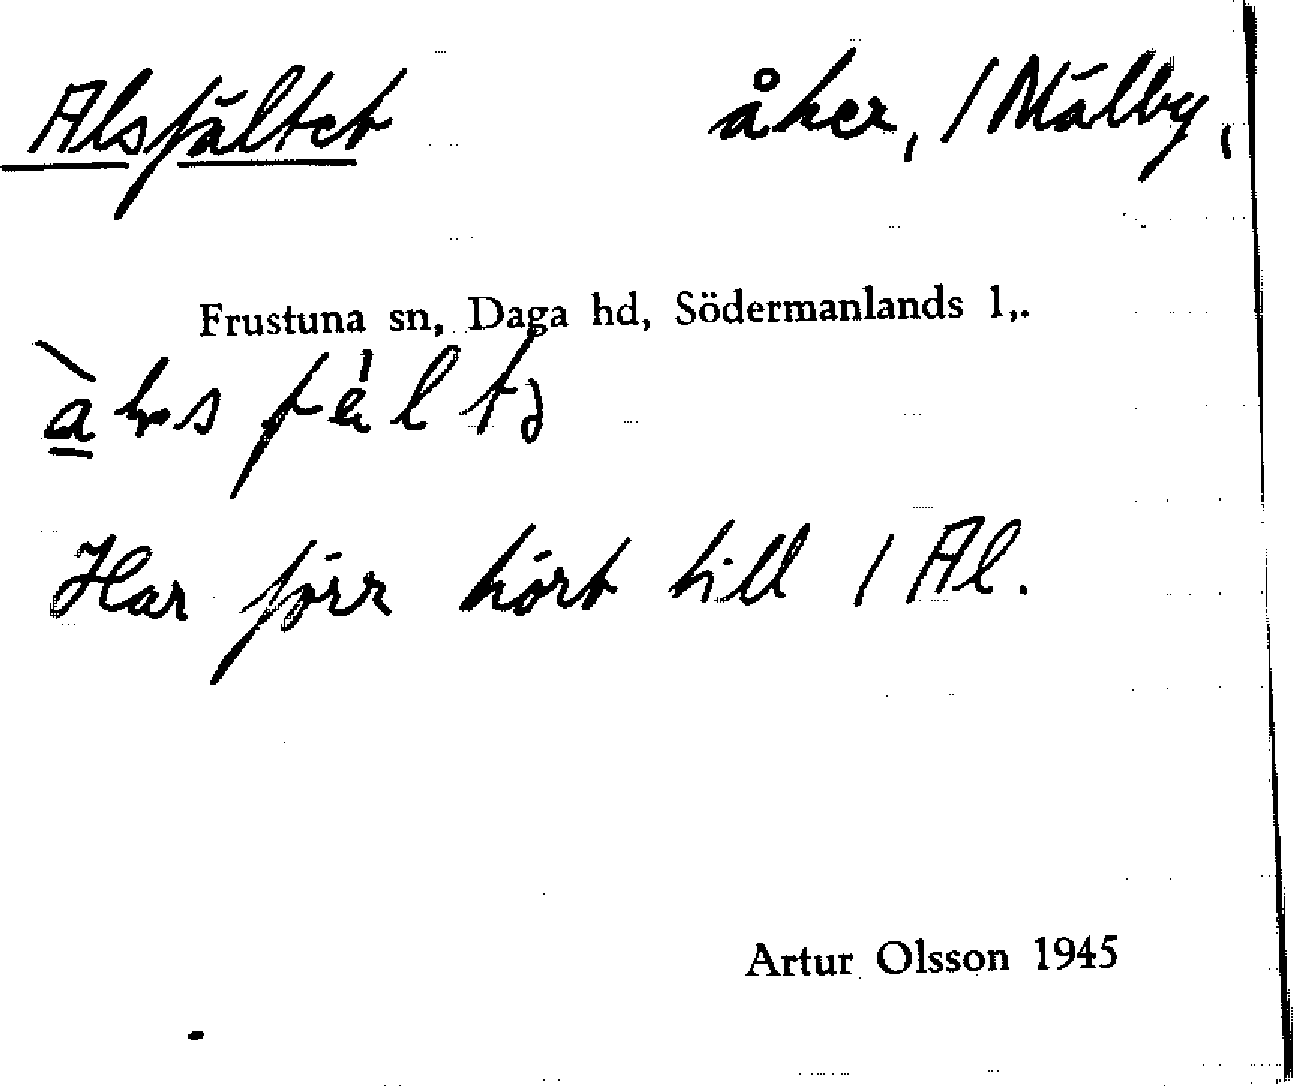 Alsfältet åker, 1 Mälby,
Frustuna sn, Daga hd, Södermanlands l,.
Har förr hört till 1 Al.
Artur Olsson 1945